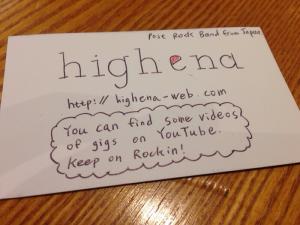 Post Rock Band from Japan
highena
http://highena-web.com
You can find some videos
of gigs on YouTube.
Keep on Rockin!